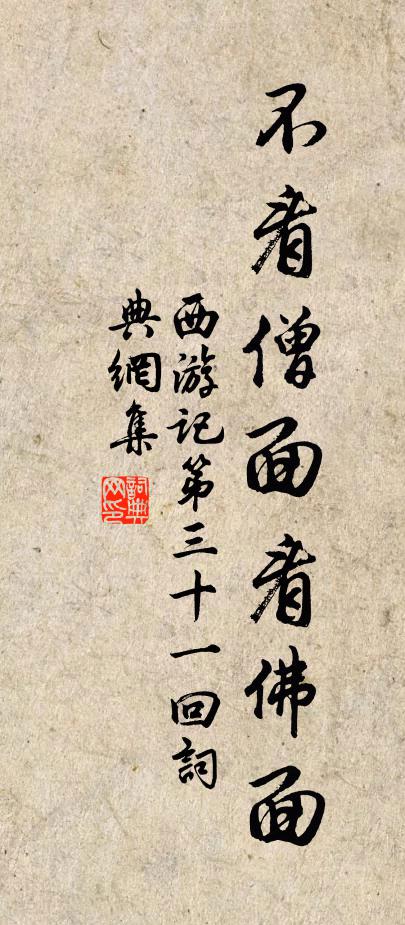 不看僧面看佛面
西游记第三十一回詞
典網集
詞典
网印